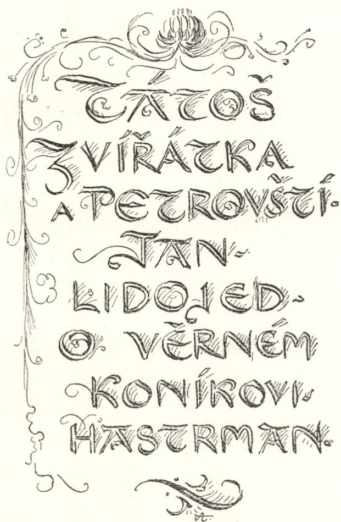 TÁTOŠ
ZVÍŘÁTKA
A PETROVŠTÍ.
JAN.
LIDOJED.
O VĚRNÉM
KONÍKOVI.
HASTRMAN.